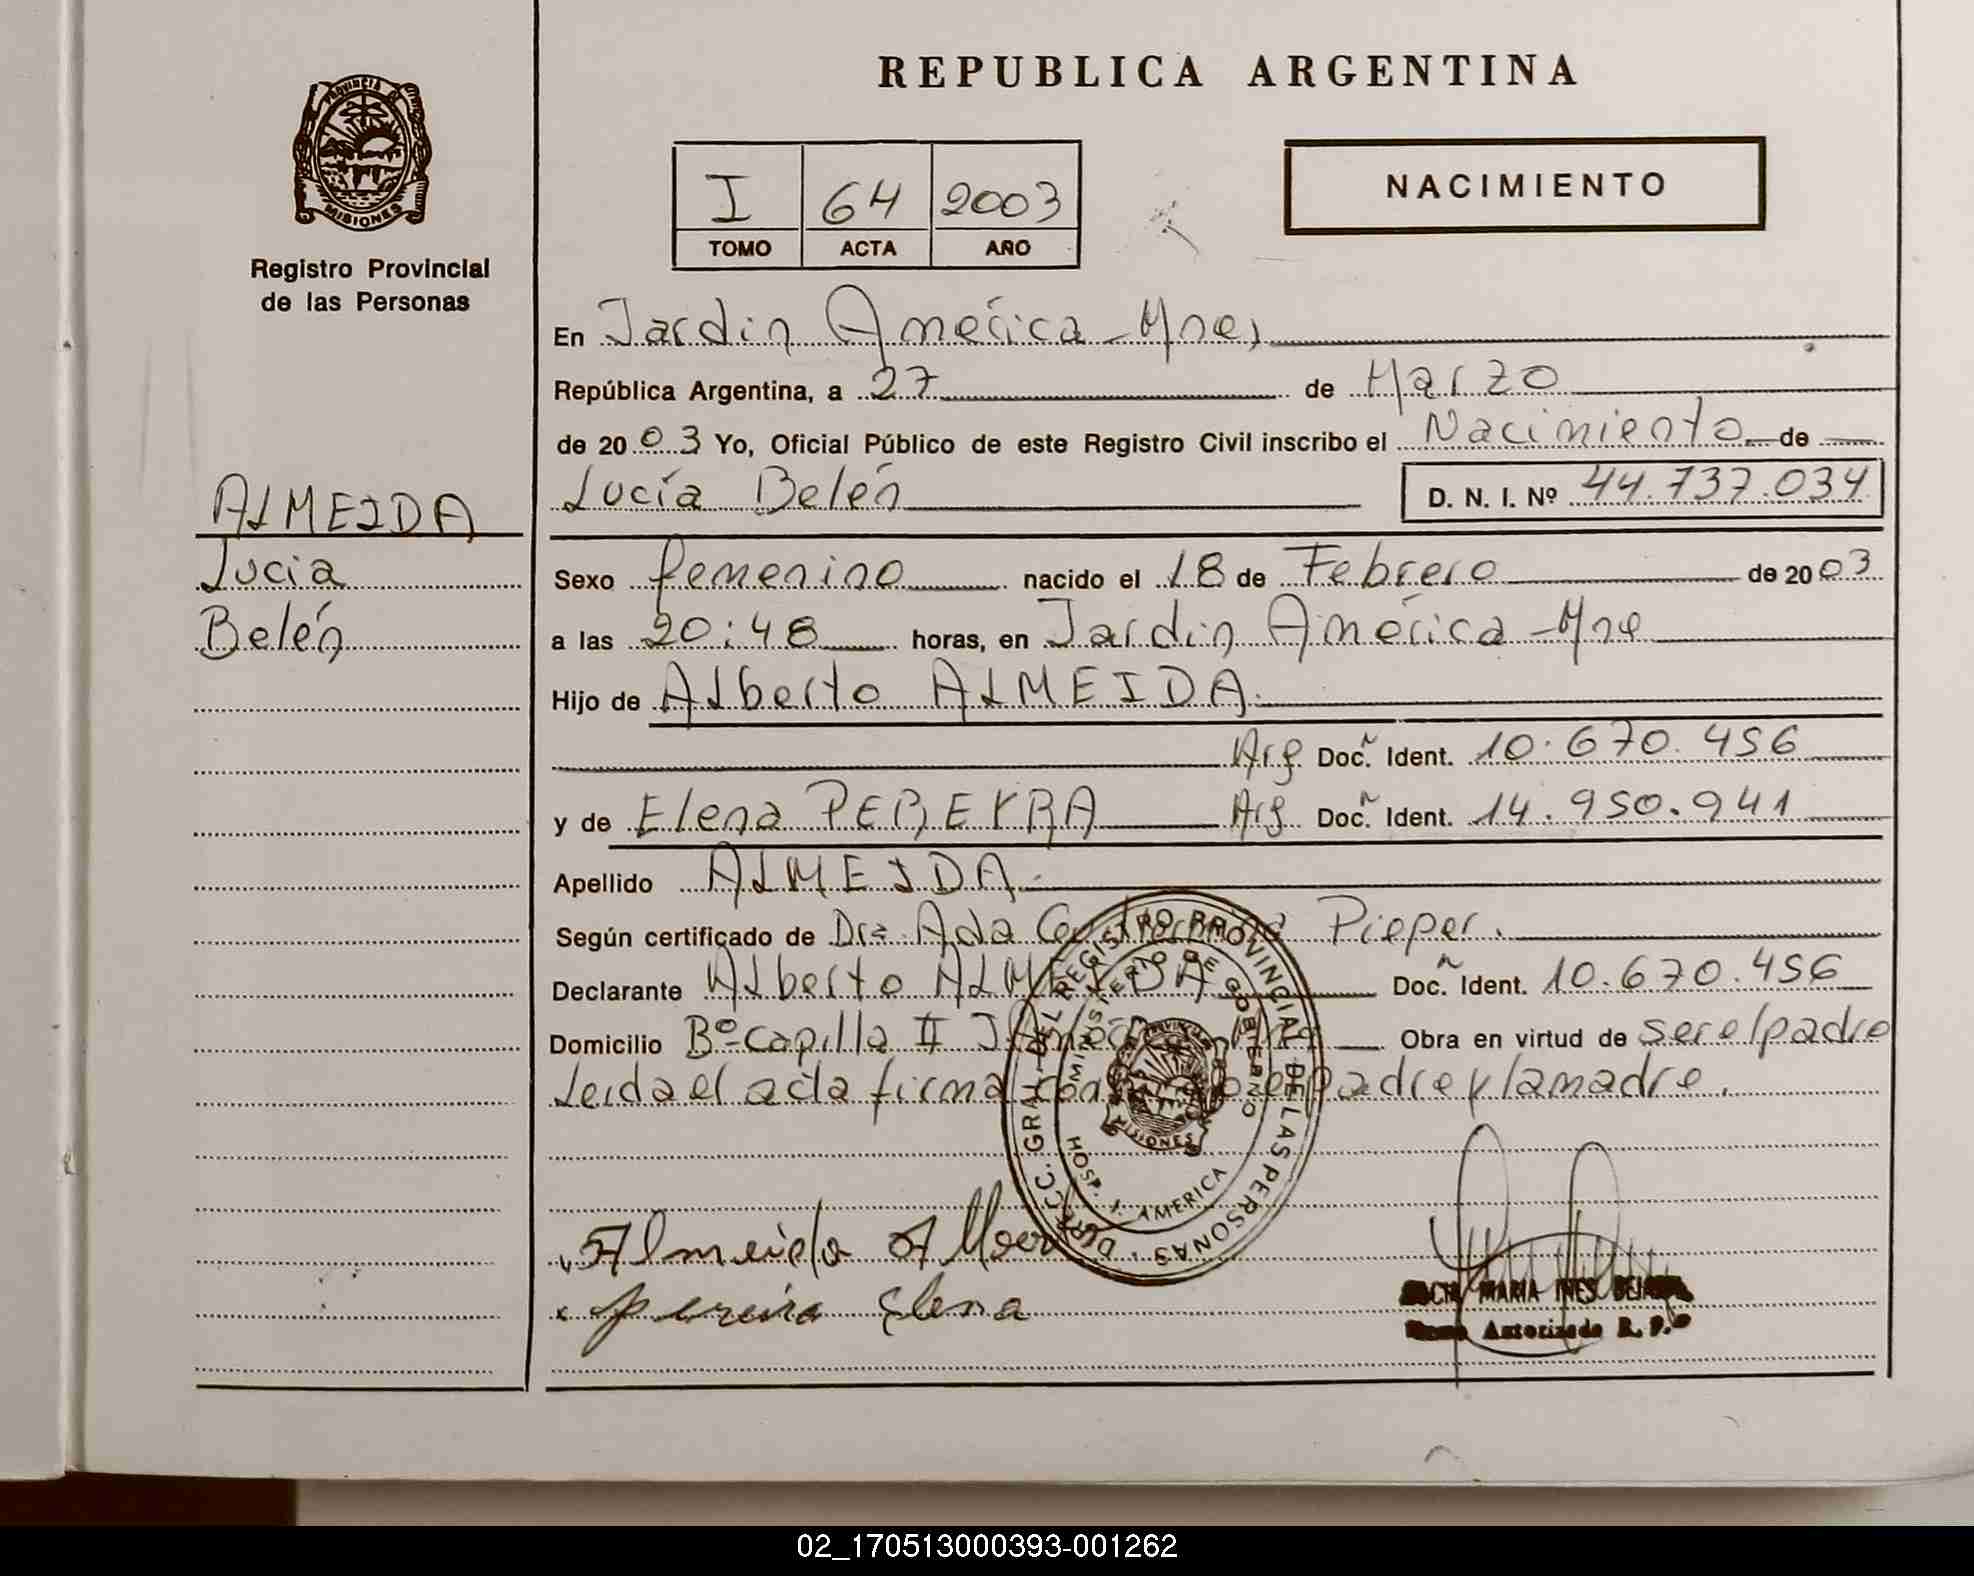 REPUBLICA ARGENTINA
PROVINCIA DE
MISIONES
Registro Provincial
de las Personas
I 64 2003
TOMO ACTA AÑO
NACIMIENTO
En Jardin América - Mnes,
República Argentina, a 27 de Marzo
de 2003 Yo, Oficial Público de este Registro Civil inscribo el Nacimiento de
Lucía Belén D. N. I. Nº 44.737.034
ALMEIDA
Lucia
Belén
Sexo femenino nacido el 18 de Febrero de 2003
a las 20:48 horas, en Jardin América - Mne
Hijo de Alberto ALMEIDA.
Arg Doc. Ident. 10.670.456
y de Elena PEREYRA Arg Doc. Ident. 14.950.941
Apellido ALMEIDA.
Según certificado de Dra Ada Pieper.
Declarante Alberto ALMEIDA Doc. Ident. 10.670.456
Domicilio Bº Capilla II Obra en virtud de ser el padre
Leida el acta firma padre y la madre.
DIRECC. GRAL. DEL REGISTRO PROVINCIAL DE LAS PERSONAS
MINISTERIO DE GOBIERNO
PROVINCIA
MISIONES
HOSP. J. AMERICA
Almeida
pereira Elena
MARIA INES
Autorizada R. P.
02_170513000393-001262